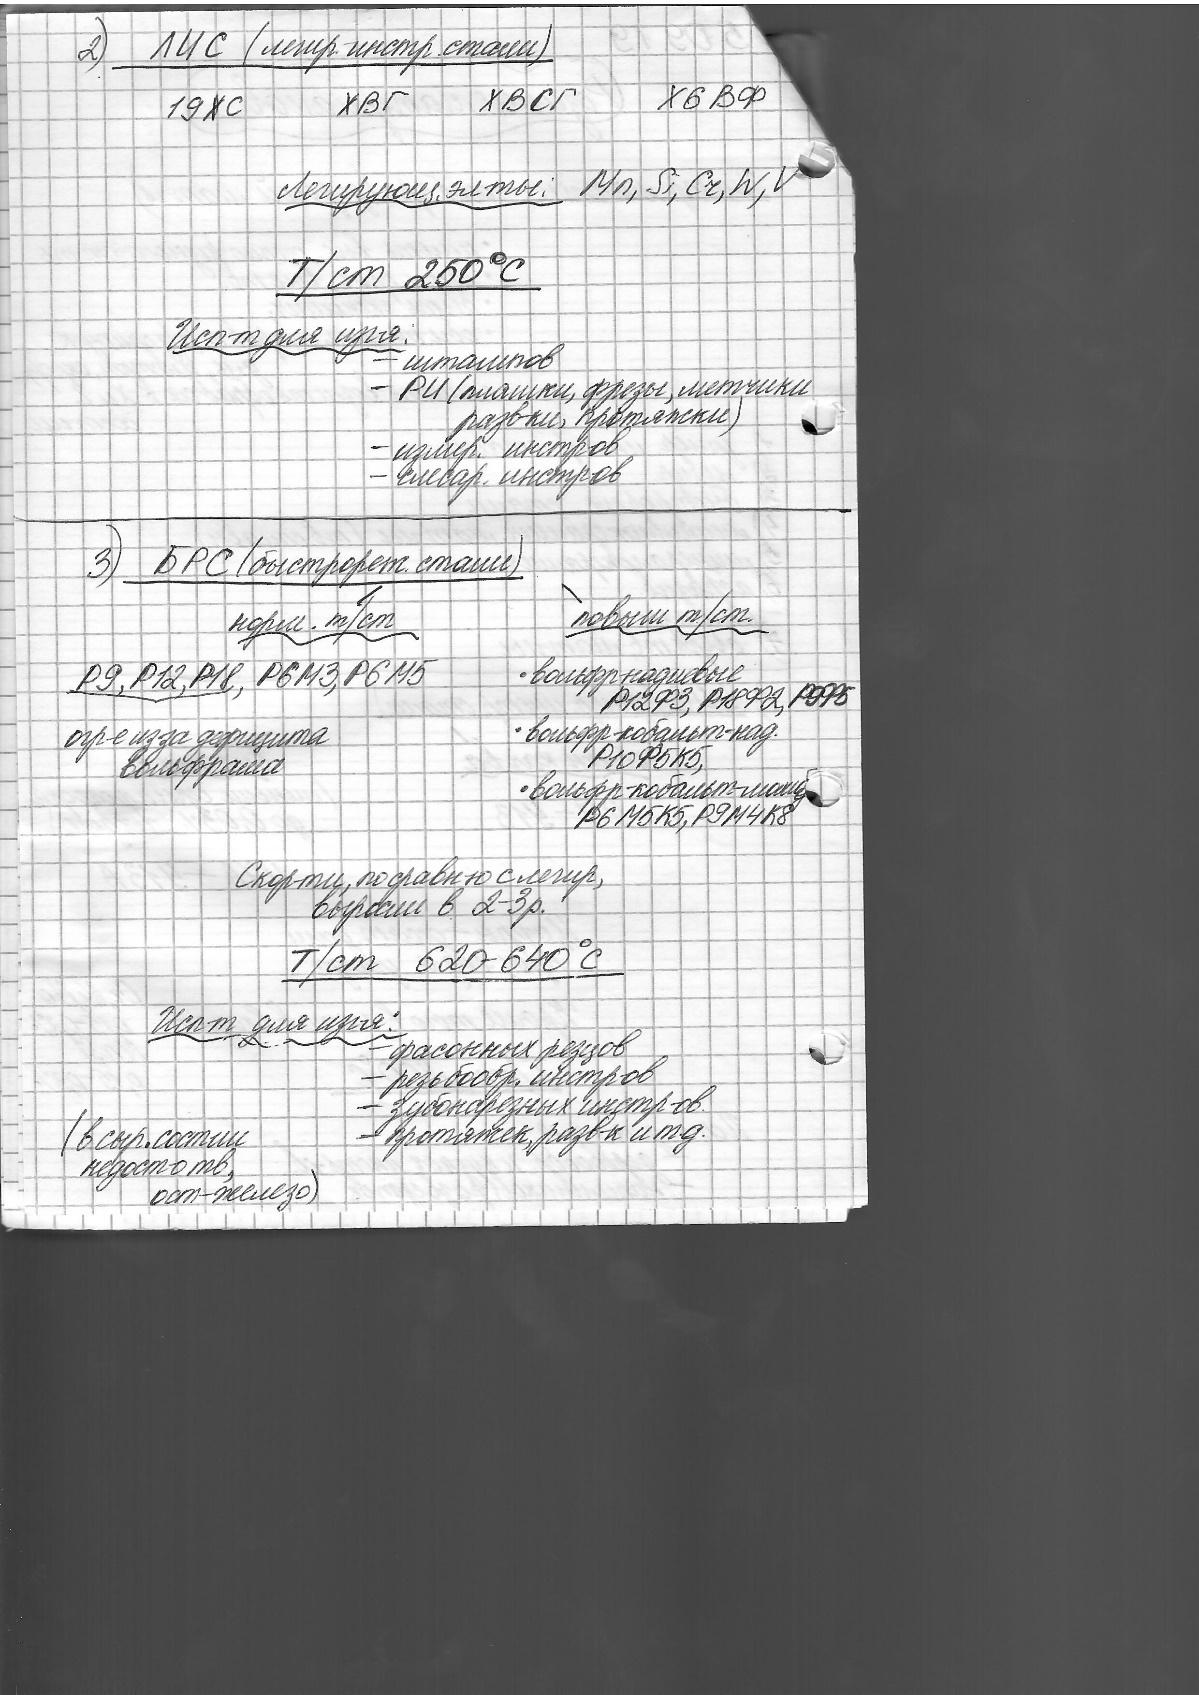 2) ЛИС (легир. инстр. стали)
19ХС ХВГ ХВСГ Х6ВФ
Легирующ. эл-ты: Mn, Si, Cr, W, V
Т/ст 250°С
Исп-т для изг-я:
– штампов
– РИ (плашки, фрезы, метчики
разв-ки, протяжки)
– измер. инстр-ов
– слесар. инстр-ов
3) БРС (быстрореж. стали)
норм. т/ст повыш т/ст.
Р9, Р12, Р18, Р6М3, Р6М5
• вольфр-надиевые
Р12Ф3, Р18Ф2, Р9Ф5
огр-е из за дефицита
вольфрама
• вольфр-кобальт-над.
Р10Ф5К5,
• вольфр-кобальт-молиб
Р6М5К5, Р9М4К8
Скор-ти, по сравн-ю с легир,
выросли в 2-3 р.
Т/ст 620-640°С
Исп-т для изг-я:
– фасонных резцов
– резьбообр. инстр-ов
– зубонарезных инстр-ов.
– протяжек, разв-к и т д.
(в сыр. сост-ии
недост-о тв,
ост-железо)